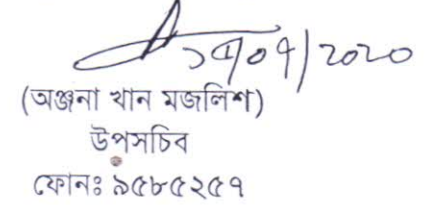 /০৭/২০২০
(অঞ্জনা খান মজলিশ)
উপসচিব
ফোনঃ ৯৫৮৫২৫৭